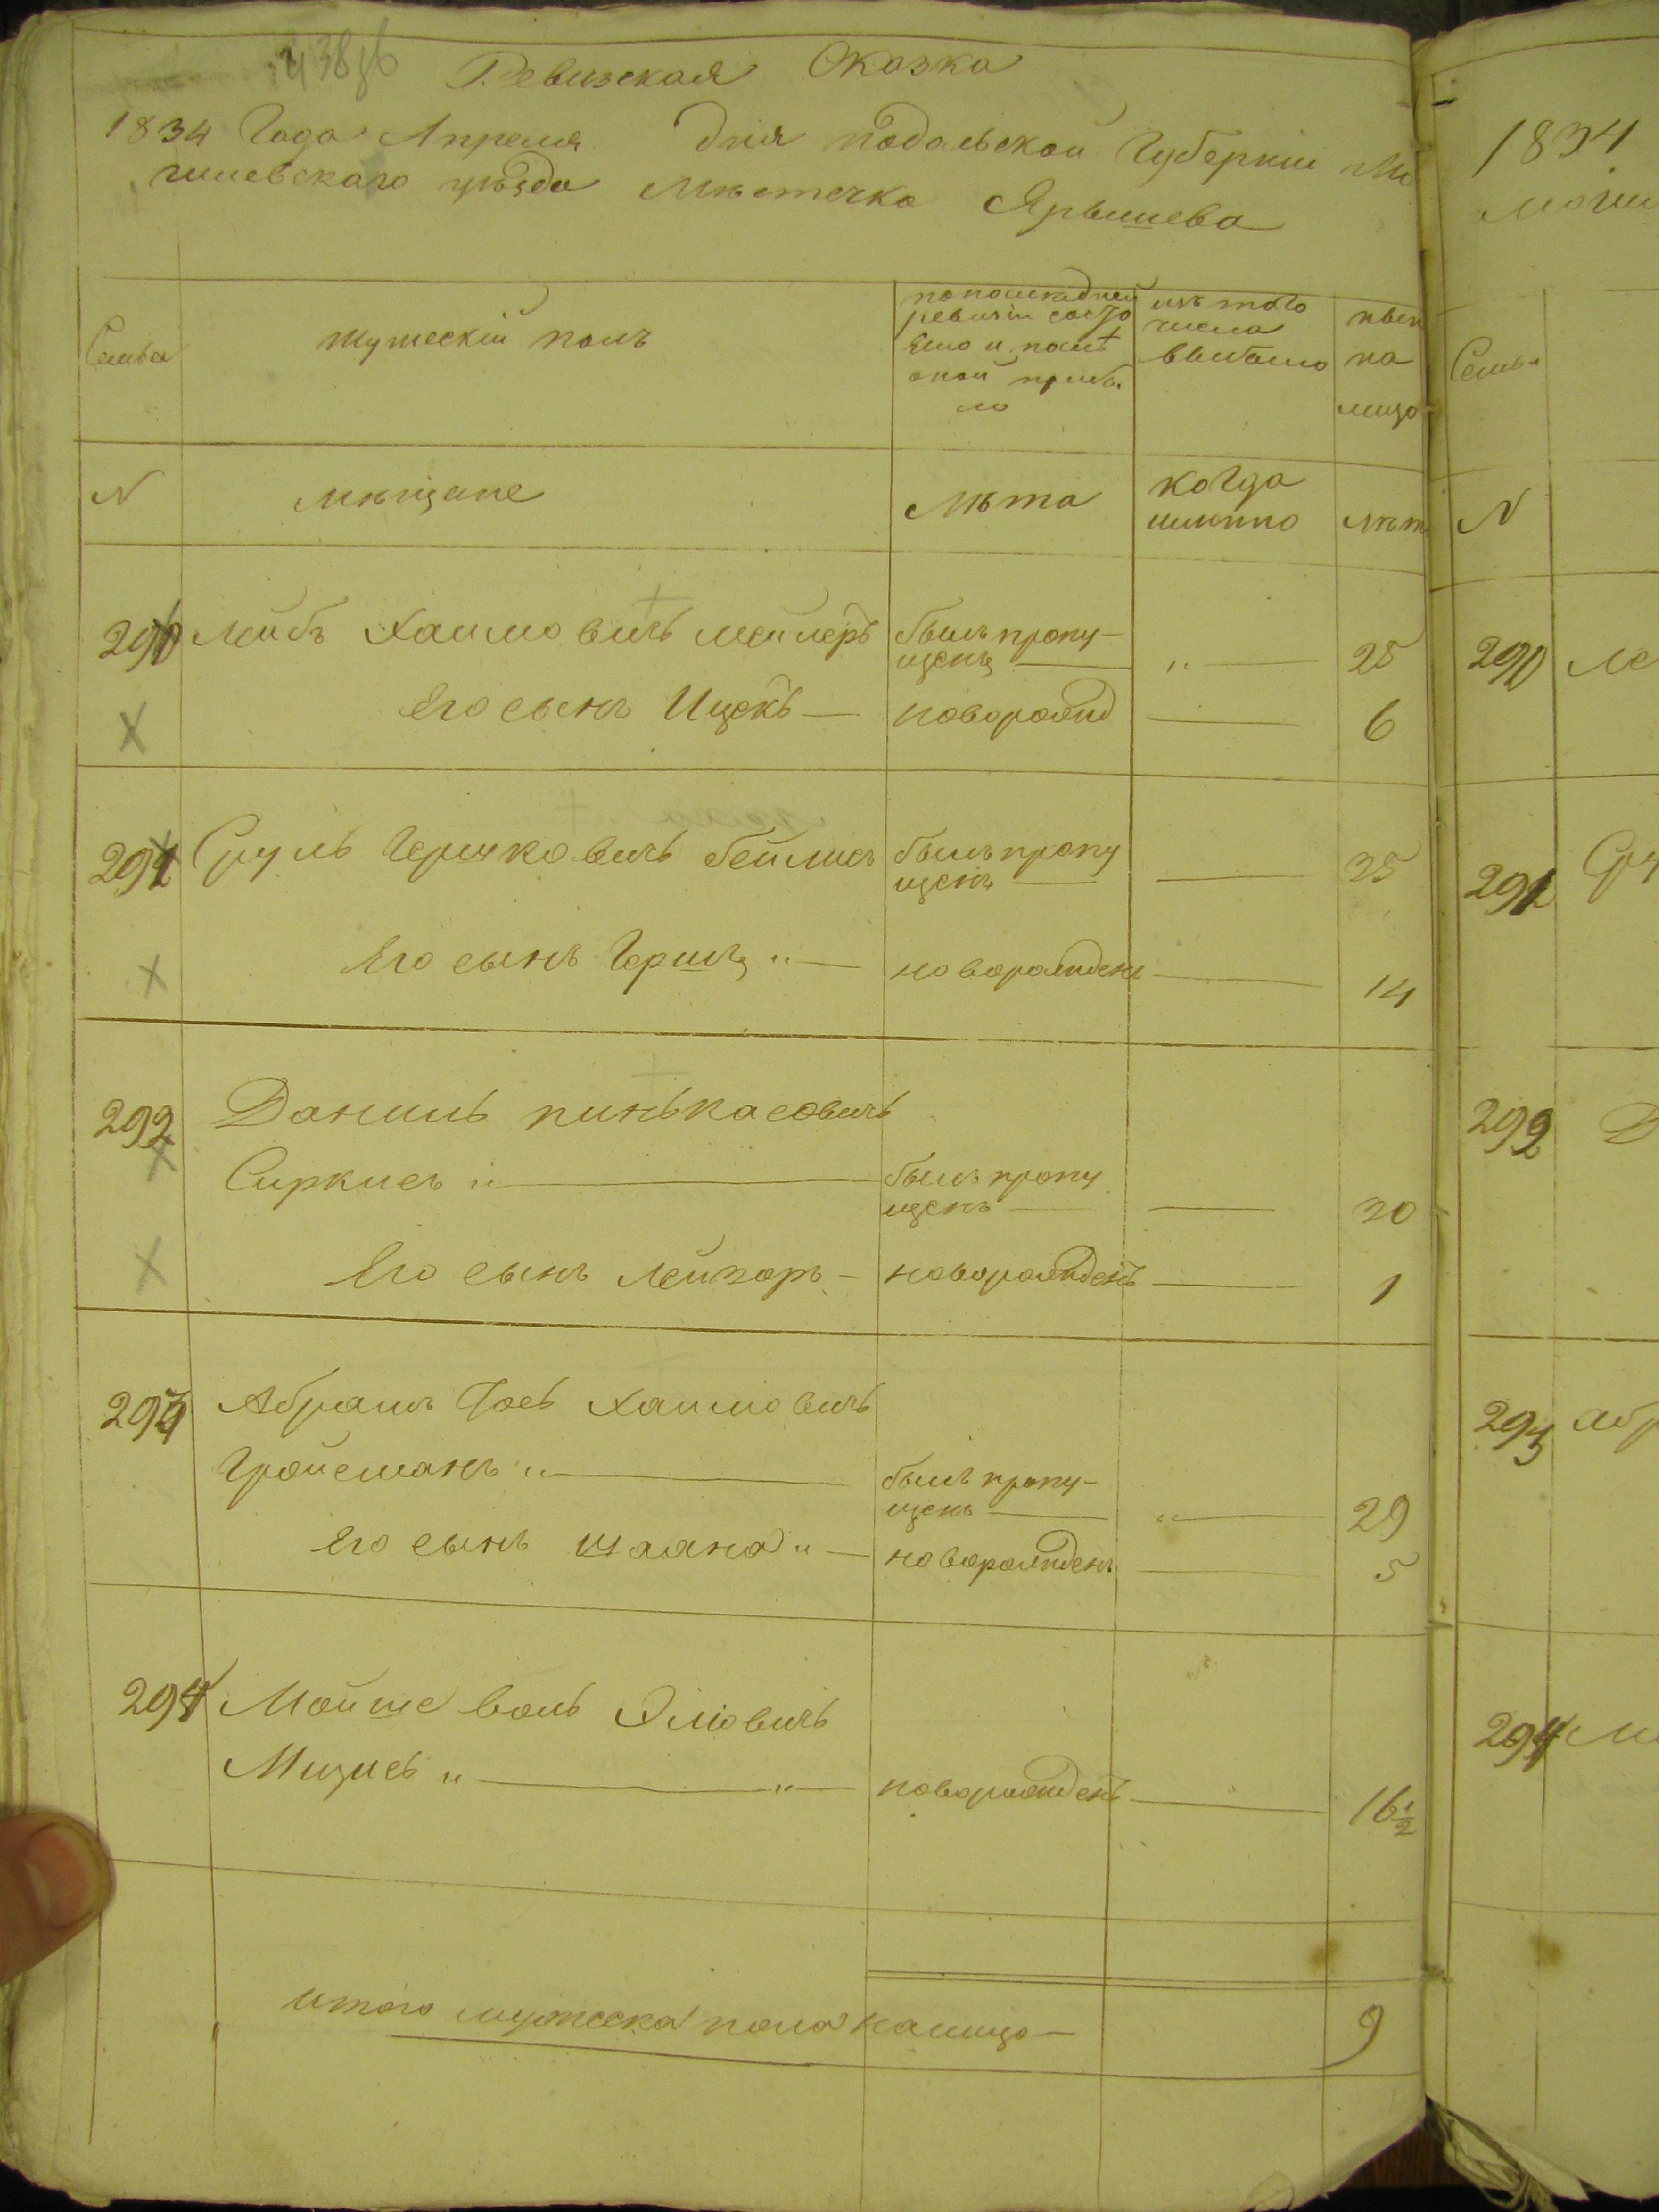 Ревизская Сказка
1834 Года Апреля дня подольской Губернiи Мо
гилевскаго уезда Местечка Ярышева
Семьи
мужескiй полъ
по последней
ревизiи состо
яло и после
оной прибы
ло
изъ того
числа
выбыло
ныне
на
лицо
N
мещане
лета
когда
именно
лет
290 Лейбъ Хаимовичъ Мейлеръ былъ пропу-
щенъ „ 25
его сынъ Ицекъ новорожд 6
291 Сруль Гершковичъ Бейлисъ былъ пропу
щенъ 35
его сынъ Гершъ „ новорожденъ 14
292 Даниль Пинькасовичъ
Сиркисъ „ былъ пропу
щенъ 30
Его сынъ Лейзоръ новорожденъ 1
293 Абрамъ Iось Хаимовичъ
Гройсманъ „ былъ пропу-
щенъ „ 29
его сынъ Шаана „ новорожденъ 5
294 Мойше Воль Элiовичъ
Мицисъ „ „ новорожденъ 16½
итого мужеска пола налицо 9
1834
могил
Семьи
N
290 ле
291 Сру
292 Д
293 абр
294 м